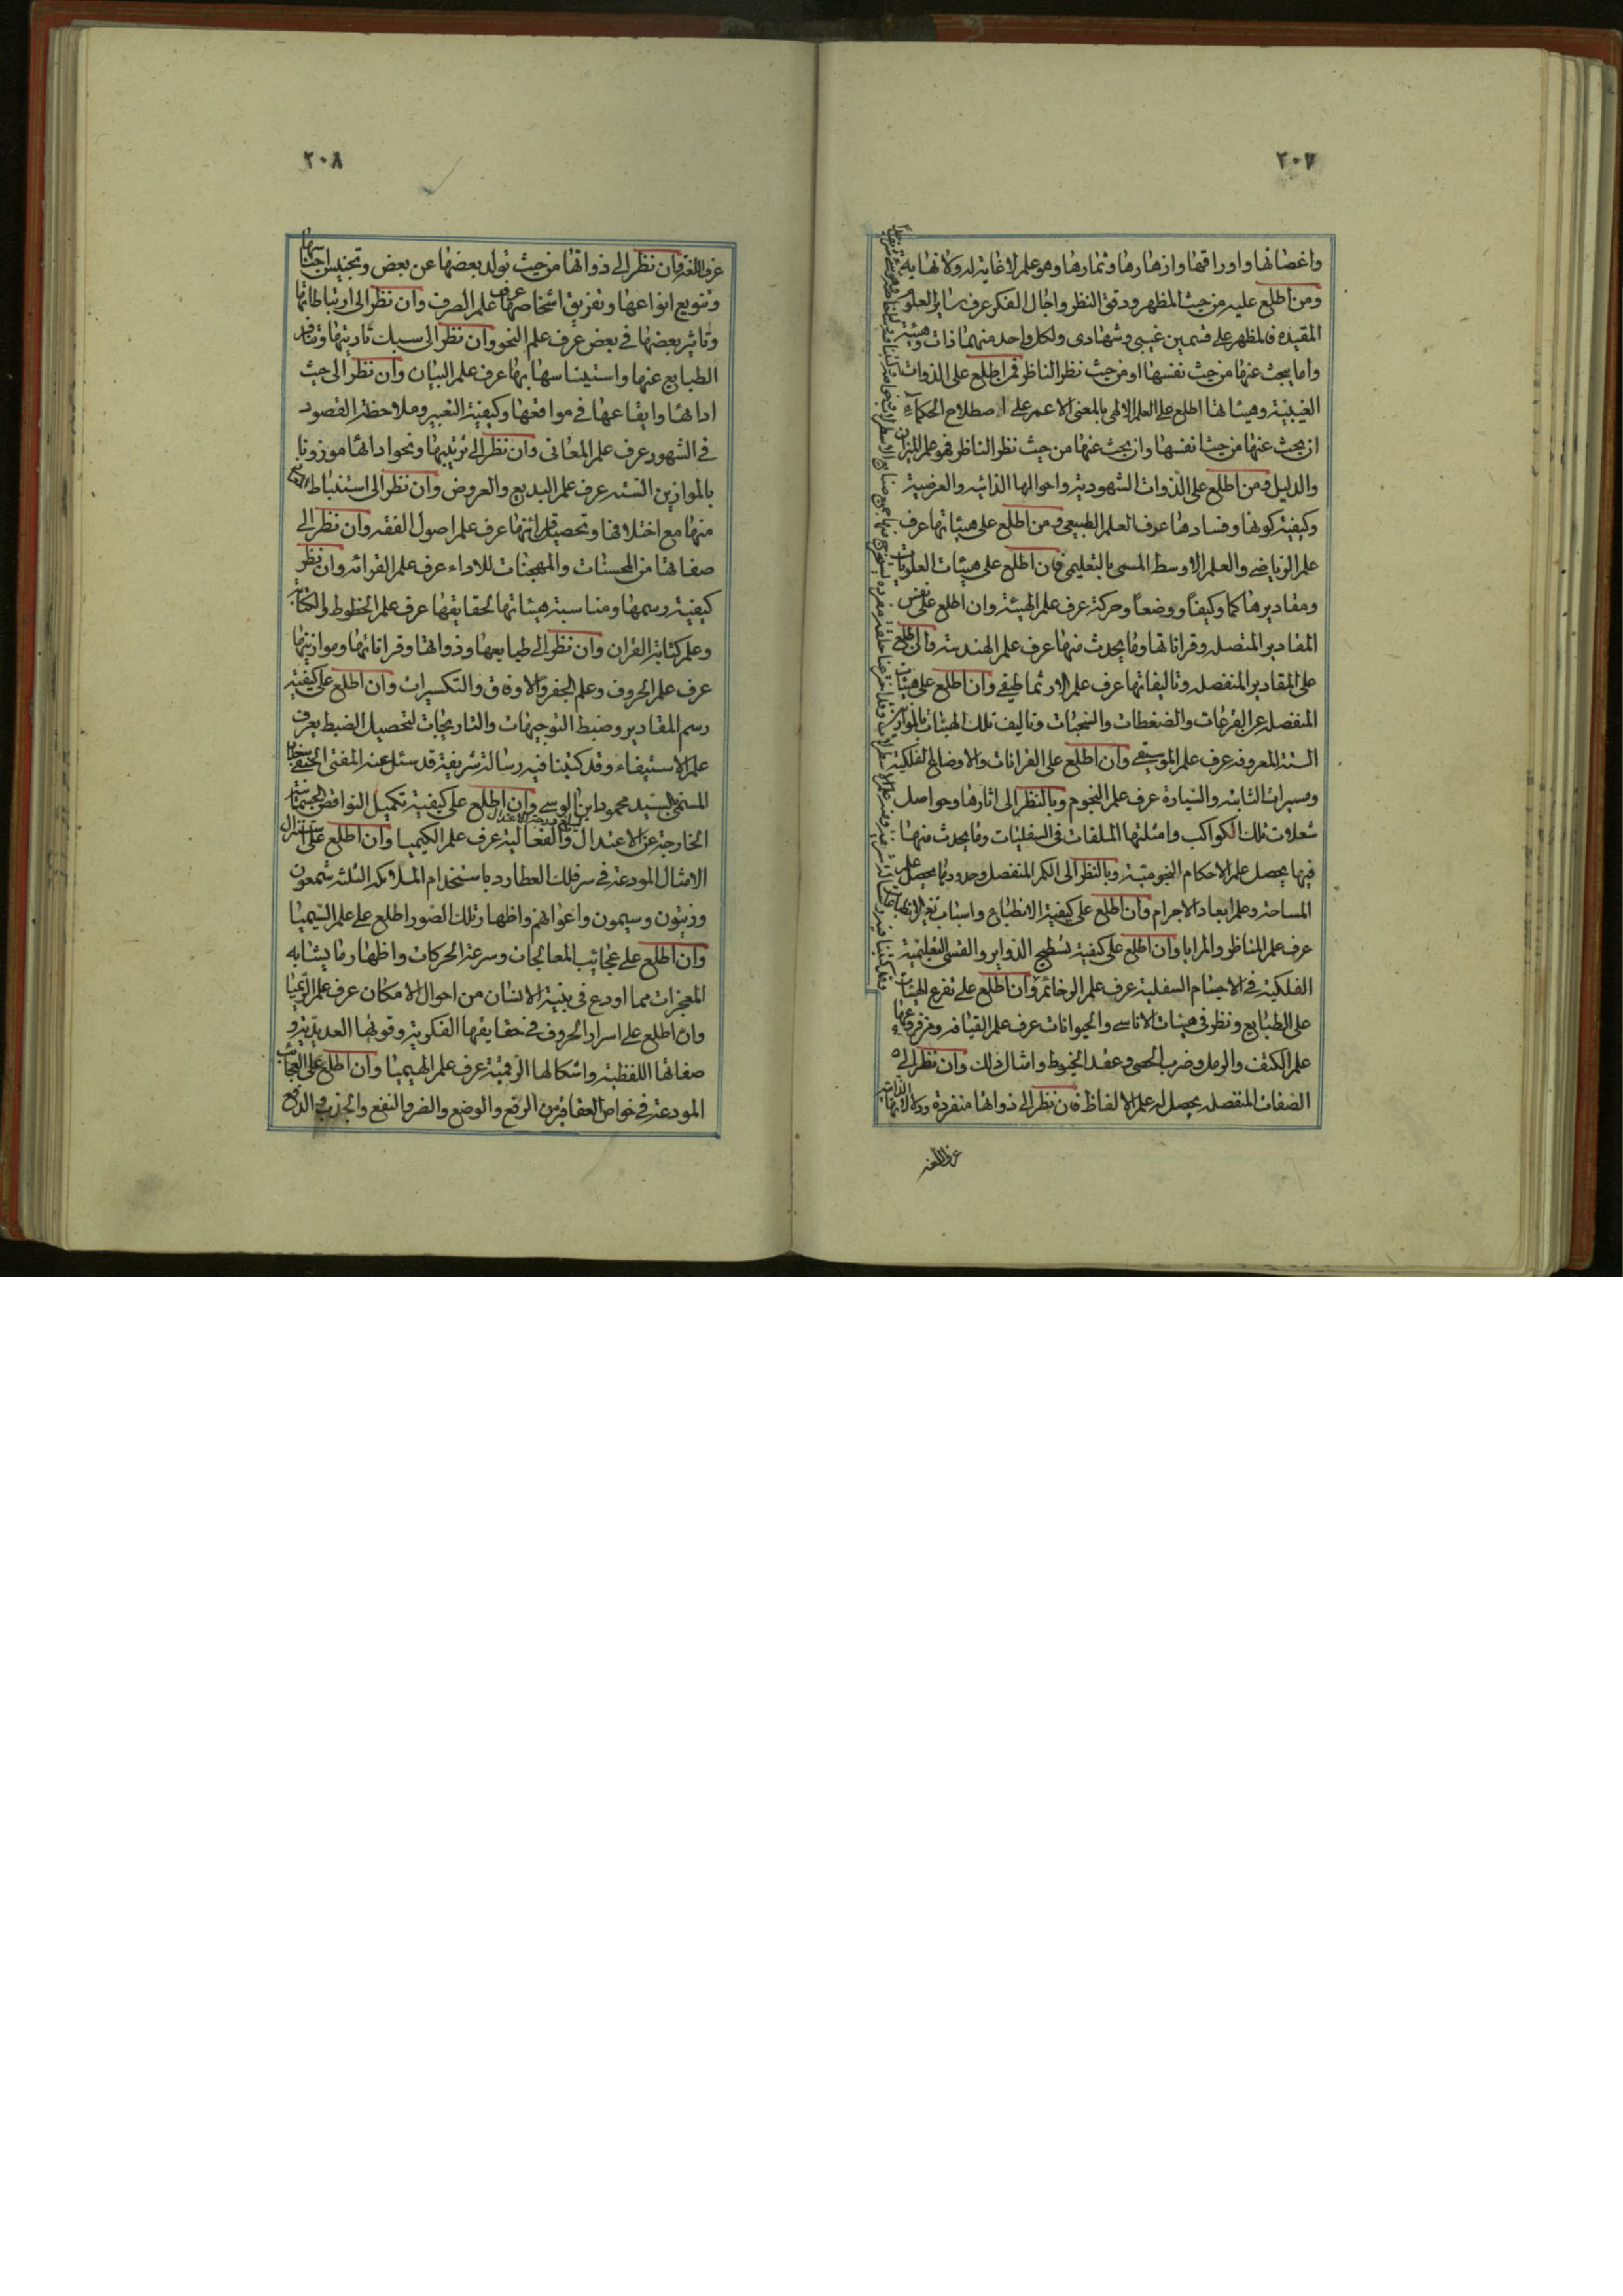 ٢٠٧
واغصانها واوراقها وازهارها وثمارها وهو علم لا غاية له ولا نهاية
ومن اطلع عليه من حيث المظهر ودقق النظر واجال الفكر عرف سائر العلوم
المقيده فالمظهر على قسمين غيبى وشهادى ولكل واحد منهما ذات وهيئة
واما يبحث عنها من حيث نفسها او من حيث نظر الناظر فمن اطلع على الذوات
الغيبية وهيئاتها اطلع على العلم الالهى بالمعنى الاعم على اصطلاح الحكماء
ان بحث عنها من حيث نفسها وان بحث عنها من حيث نظر الناظر فهو علم الميزان
والدليل ومن اطلع على الذوات الشهودية واحوالها الذاتيه والعرضية
وكيفية كونها وفسادها عرف العلم الطبيعى ومن اطلع على هيئاتها عرف
علم الرياضى والعلم الاوسط المسمى بالتعليمى فان اطلع على هيئات العلويات
ومقاديرها كما وكيفاً ووضعاً وحركة عرف علم الهيئة وان اطلع على نفس
المقادير المتصله وقراناتها وما يحدث منها عرف علم الهندسة وان اطلع
على المقادير المنفصله وتاليفاتها عرف علم الارثماطيقى وان اطلع على هيئات
المنفصله عن القرعات والضغطات والنجبات وتاليف تلك الهيئات بالموازين
الستة المعروفه عرف علم الموسيقى وان اطلع على القرانات والاوضاع الفلكية
ومسيرات الثابته والسيارة عرف علم النجوم وبالنظر الى اثارها وحواصل
شعلات تلك الكواكب وامثلتها الملقات فى السفليات وما يحدث منها
فيها يحصل علم الاحكام النجومية وبالنظر الى الكم المنفصل وحدودها يحصل علم
المساحة وعلم ابعاد الاجرام وان اطلع على كيفية الانطباع واسباب
عرف علم المناظر والمرايا وان اطلع على كيفية تسطيح الدواير والقسى التعليمية
الفلكية فى الاجسام السفلية عرف علم الرخائم وان اطلع على تفرع الهيئات
على الطبايع ونظر فى هيئات الاناسى والحيوانات عرف علم القيافه ومن فروعها
علم الكتف والرمل وضرب الحصى وعقد الخيوط وامثال ذلك وان نظر الى
الصفات المنفصله يحصل له علم الالفاظ فان نظر الى ذواتها منفردة ودلالاتها
عرف اللغه
٢٠٨
عرف اللغه وان نظر الى ذواتها من حيث تولد بعضها عن بعض وتجنيس اجناسها
وتنويع انواعها وتفريق اشخاصها عرف علم الصرف وان نظر الى ارتباطاتها
وتاثير بعضها فى بعض عرف علم النحو وان نظر الى سبك تاديتها وتنافر
الطبايع عنها واستيناسها بها عرف علم البيان وان نظر الى حيث
ادائها وايقاعها فى مواقعها وكيفية التعبير وملاحظة القصود
فى الشهور عرف علم المعانى وان نظر الى ترتيبها ونحو ادائها موزونا
بالموازين الستة عرف علم البديع والعروض وان نظر الى استنباط المعانى
منها مع اختلافها وتحصيل قرائنها عرف علم اصول الفقه وان نظر الى
صفاتها من المحسنات والمهجنات للاداء عرف علم القرائه وان نظر
كيفية رسمها ومناسبة هيئاتها لحقايقها عرف علم الخطوط والكتابة
وعلم كتابة القران وان نظر الى طبايعها وذواتها وقراناتها وموازينها
عرف علم الحروف وعلم الجفر والاوفاق والتكسيرات وان اطلع على كيفية
رسم المقادير وضبط التوجيهات والتاريجات لتحصيل الضبط يعرف
علم الاستيفاء وقد كتبنا فيه رسالة شريفة قد سئل عنه المفتى الحنفى ببغداد
المسمى بالسيد محمود ابن الوسى وان اطلع على كيفية تكميل النواقص الجسمانية
الخارجة عن الاعتدال والفعالية عرف علم الكيميا وان اطلع على استنزال
الامثال المودعة فى سر فلك العطارد باستخدام الملائكه الثلثه شمعون
وزيتون وسيمون واعوانهم واظهار تلك الصور اطلع على علم السيميا
وان اطلع على عجائب المعالجات وسرعة الحركات واظهار ما يشابه
المعجزات مما اودع فى بنية الانسان من احوال الامكان عرف علم الريميا
وان اطلع على اسرار الحروف فى حقايقها الفكرية وقوتها العددية و
صفاتها اللفظية واشكالها الرقمية عرف علم الهيميا وان اطلع على العجائب
المودعة فى خواص العقاقير من الرفع والوضع والضر والنفع والجذب والدفع